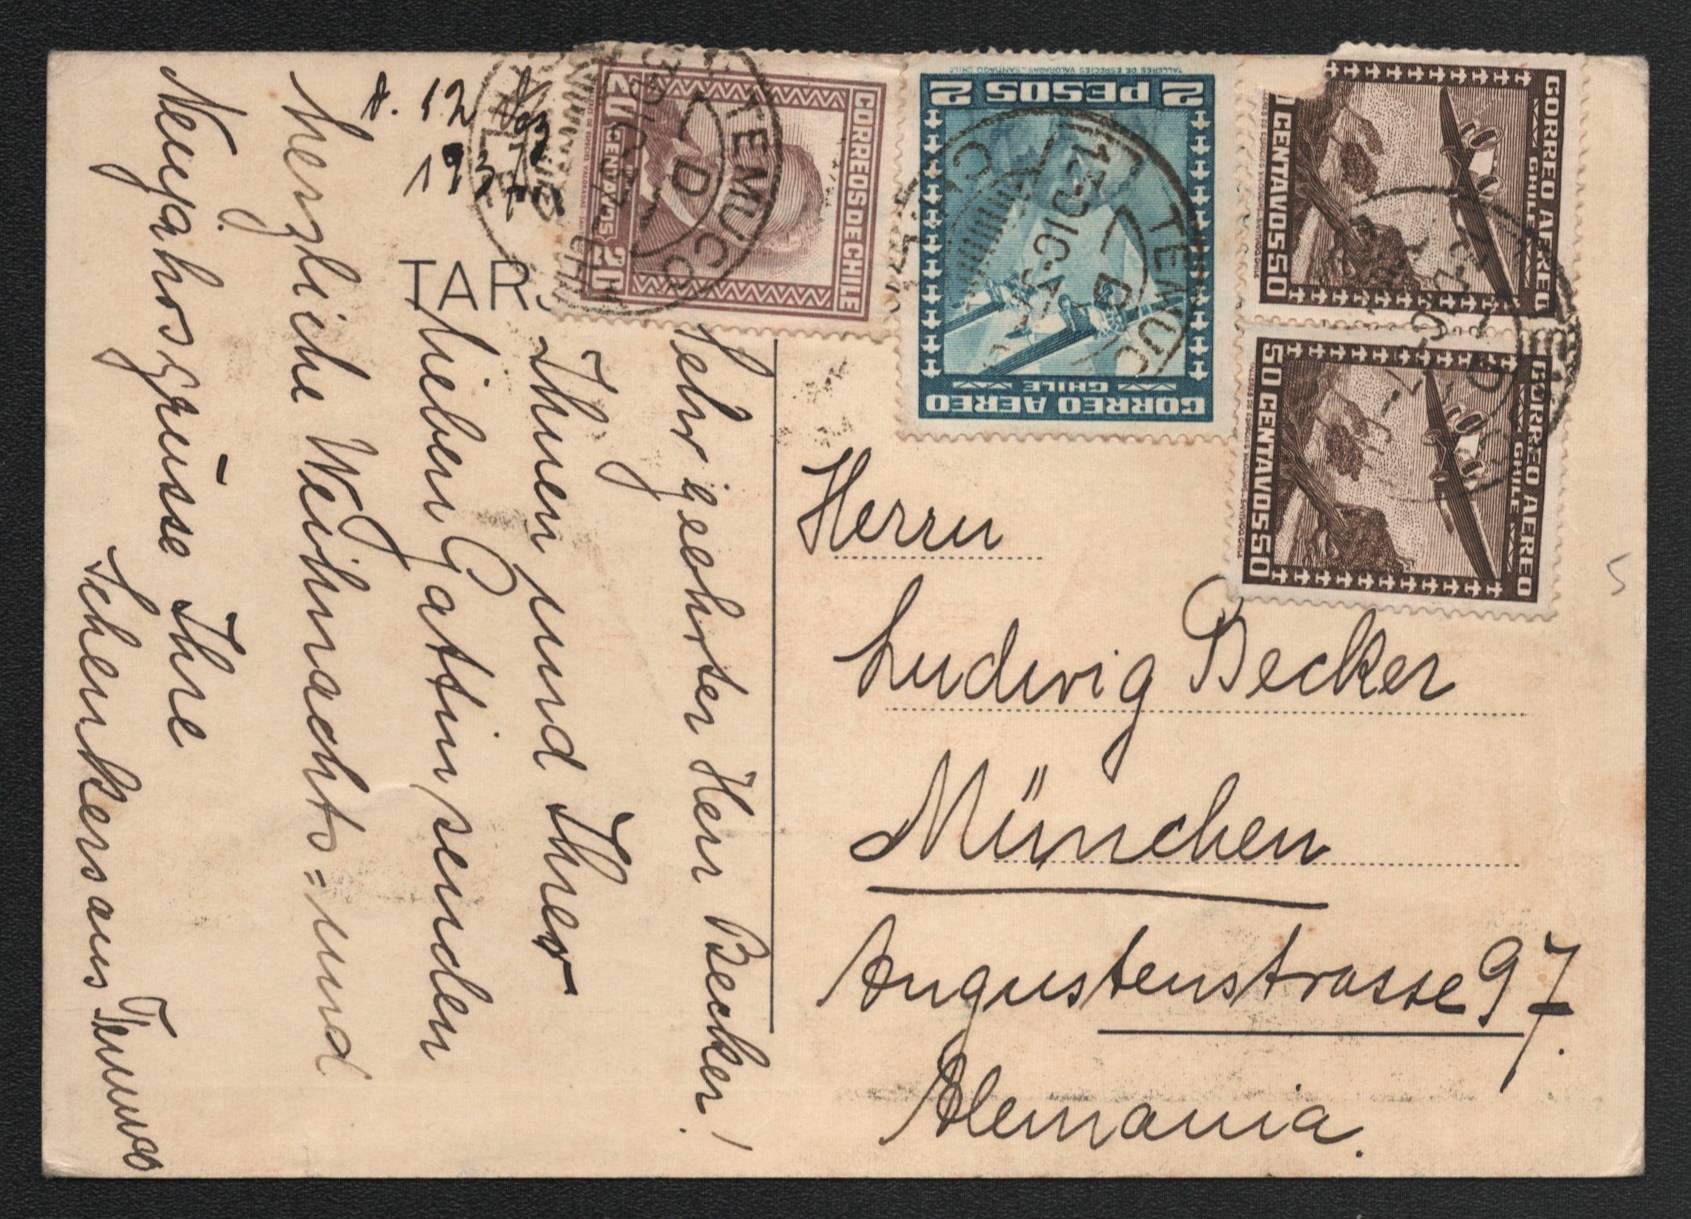 d. 12
1937
TAR
Sehr geehrter Herr Becker!
Ihnen und Ihrer
lieben Gattin senden
herzliche Weihnachts=und
Neujahrsgrüsse Ihre
Schenkers aus Temuco
Herrn
Ludwig Becker
München
Augustenstrasse 97.
Alemania.
CORREOS DE CHILE
20 CENTAVOS 20
TEMUCO
D
CHILE
2 PESOS 2
CORREO AEREO
CHILE
TALLERES DE ESPECIES VALORADAS-SANTIAGO-CHILE
TEMUCO
D
CORREO AEREO
CHILE
CENTAVOS 50
CORREO AEREO
CHILE
50 CENTAVOS 50